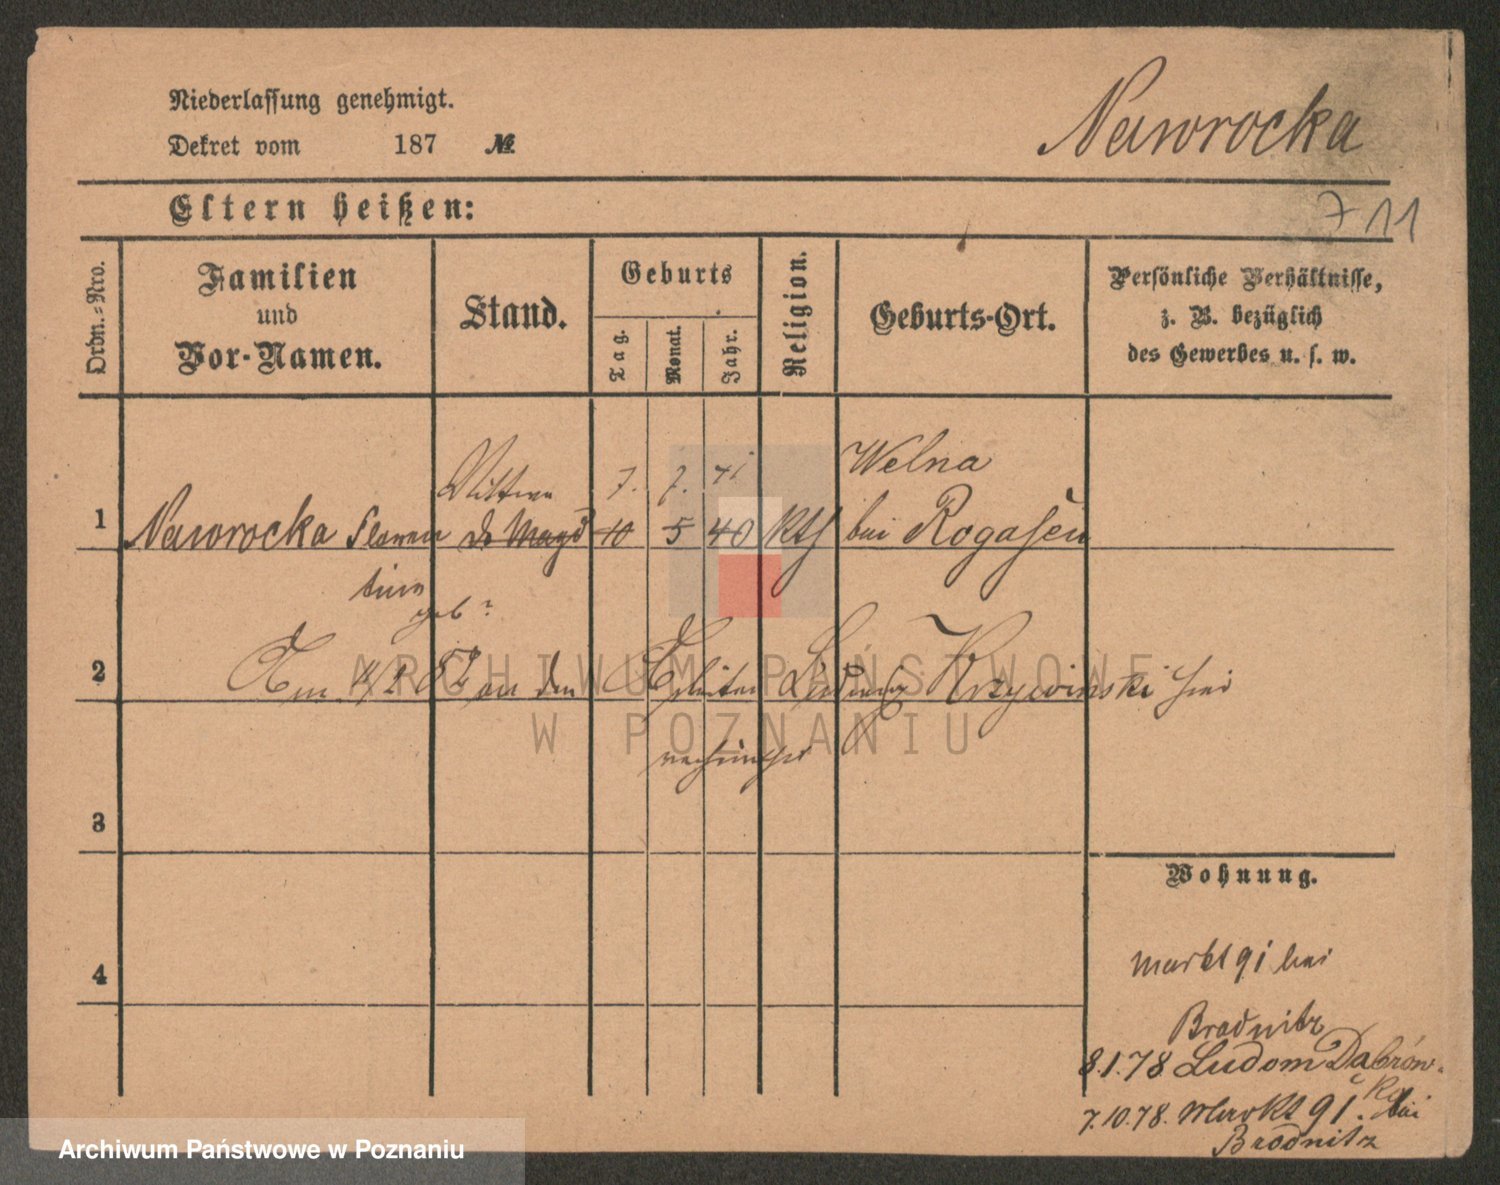 Niederlassung genehmigt.
Dekret vom 187 №
Nawrocka
711
Eltern heißen:
Ordn.-Nro.
Familien
und
Vor-Namen.
Stand.
Geburts
Tag.
Monat.
Jahr.
Religion.
Geburts-Ort.
Persönliche Verhältnisse,
z. B. bezüglich
des Gewerbes u. s. w.
Wittwe 7. 7. 41 Welna
1 Nawrocka Floren d. Magd 10 5 40 kth bei Rogasen
tine
geb?
2 Am 4/2 82 an den Arbeiter Ludwig Krzywinski hier
ARCHIWUM PAŃSTWOWE
W POZNANIU
3
Wohnung.
4
Markt 91 bei
Brodnitz
8.1.78 Ludom Dąbrów-
ka
7.10.78. Markt 91. bei
Brodnitz
Archiwum Państwowe w Poznaniu